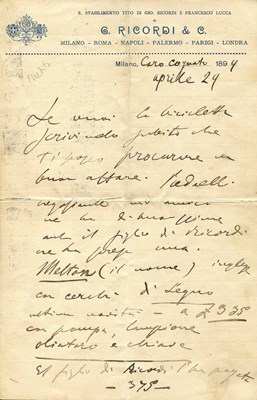 R. STABILIMENTO TITO DI GIO. RICORDI E FRANCESCO LUCCA
DI
G. RICORDI & C.
MILANO - ROMA - NAPOLI - PALERMO - PARIGI - LONDRA
Milano, Caro cognato 1894
aprile 24
Se vuoi la bicicletta
scrivimi subito che
ti posso procurare un
buon affare.
un amico
anche il figlio di Ricordi
ne ha presa una.
Melton (il nome) inglese
con cerchi di legno
ultima novità - a £ 335
con pompa, lampione
oliatore e chiave
Il figlio di Ricordi l'ha pagata
- 375 -